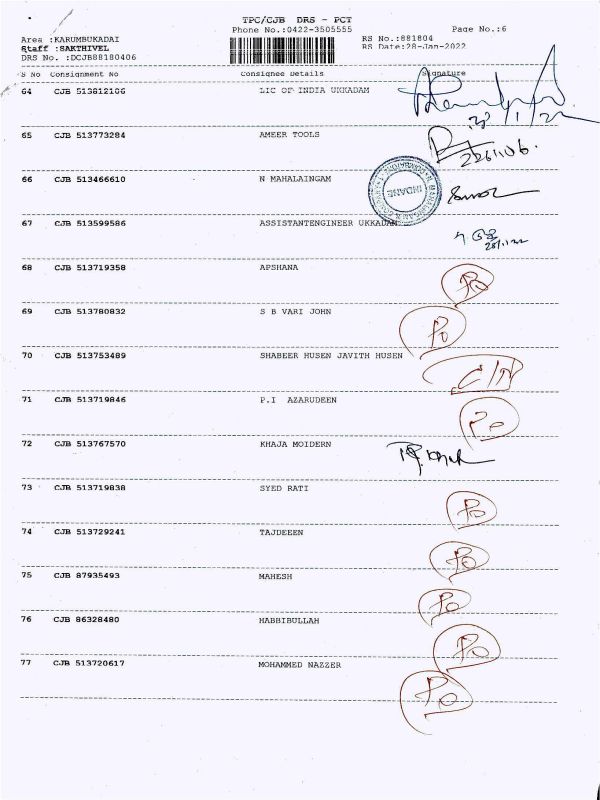 TPC/CJB DRS - PCT
Phone No.:0422-3505555
Page No.:6
Area :KARUMBUKADAI
RS No.:881804
Staff :SAKTHIVEL
RS Date:28-Jan-2022
DRS No. :DCJB88180406
S No Consignment No Consignee Details Signature
64 CJB 513812106 LIC OF INDIA UKKADAM
65 CJB 513773284 AMEER TOOLS
66 CJB 513466610 N MAHALAINGAM
INDANE
67 CJB 513599586 ASSISTANTENGINEER UKKADAM
68 CJB 513719358 APSHANA
Po
69 CJB 513780832 S B VARI JOHN
Po
70 CJB 513753489 SHABEER HUSEN JAVITH HUSEN
71 CJB 513719846 P.I AZARUDEEN
Po
72 CJB 513767570 KHAJA MOIDERN
73 CJB 513719838 SYED RATI
Po
74 CJB 513729241 TAJDEEEN
Po
75 CJB 87935493 MAHESH
Po
76 CJB 86328480 HABBIBULLAH
Po
77 CJB 513720617 MOHAMMED NAZZER
Po